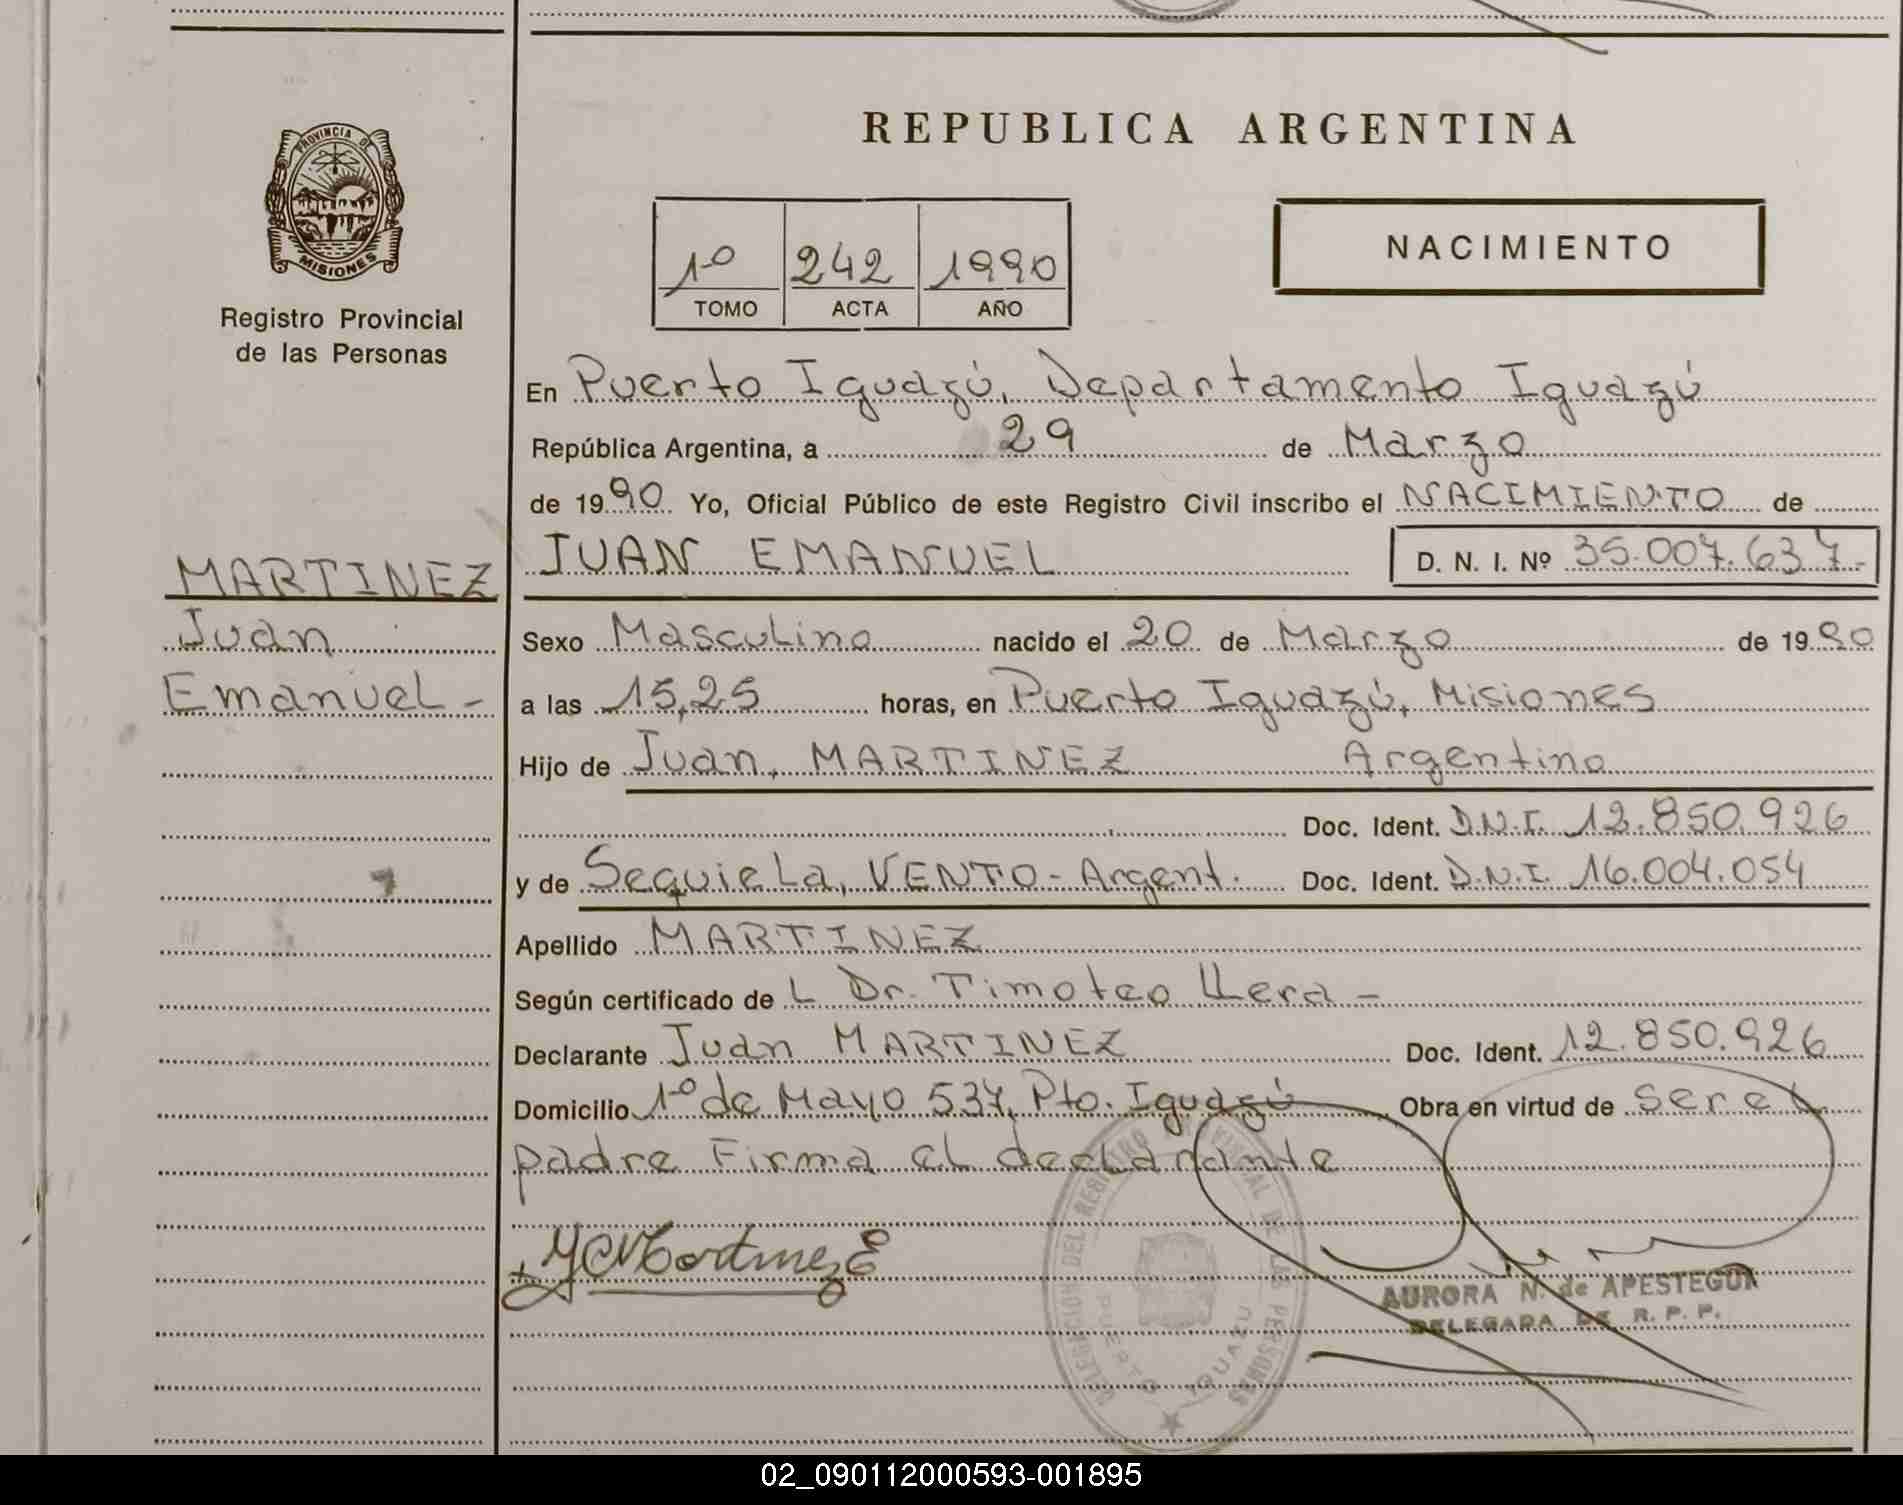 PROVINCIA DE
MISIONES
Registro Provincial
de las Personas
MARTINEZ
Juan
Emanuel -
REPUBLICA ARGENTINA
1º 242 1990
TOMO ACTA AÑO
NACIMIENTO
En Puerto Iguazú, Departamento Iguazú
República Argentina, a 29 de Marzo
de 1990 Yo, Oficial Público de este Registro Civil inscribo el NACIMIENTO de
JUAN EMANUEL D. N. I. Nº 35.007.637.-
Sexo Masculino nacido el 20 de Marzo de 1990
a las 15,25 horas, en Puerto Iguazú, Misiones
Hijo de Juan, MARTINEZ Argentino
Doc. Ident. D.N.I. 12.850.926
y de Sequiela, VENTO - Argent. Doc. Ident. D.N.I. 16.004.054
Apellido MARTINEZ
Según certificado de L Dr. Timoteo LLera -
Declarante Juan MARTINEZ Doc. Ident. 12.850.926
Domicilio 1º de Mayo 537, Pto. Iguazú Obra en virtud de ser el
padre Firma el declarante
DELEGACION DEL REGISTRO DE LAS PERSONAS
PUERTO IGUAZU
AURORA N. de APESTEGUI
DELEGADA DE R. P. P.
02_090112000593-001895